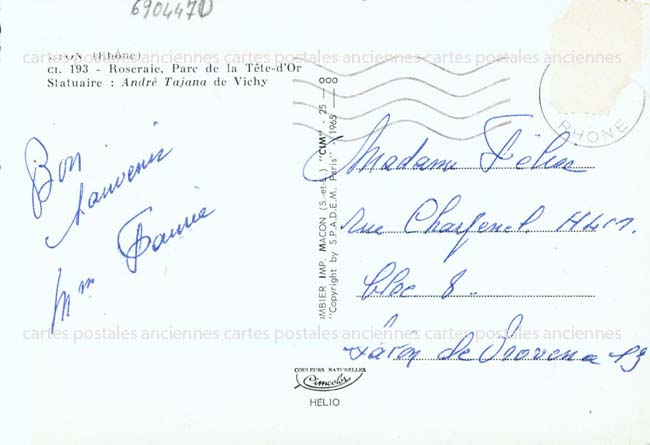 690447D
LYON (Rhône)
CI. 193 - Roseraie, Parc de la Tête-d'Or
Statuaire : André Tajana de Vichy
cartes postales anciennes cartes postales anciennes cartes postales anciennes
Bon
souvenir
Mme
COMBIER IMP. MACON (S.-et-L.) "CIM" - 25 -
"Copyright by S.P.A.D.E.M. Paris" - 1965
RHONE
Madame Félix
rue H.L.M.
bloc 8.
de Provence 13
cartes postales anciennes cartes postales anciennes cartes postales anciennes
COULEURS NATURELLES
Cimcolor
HÉLIO